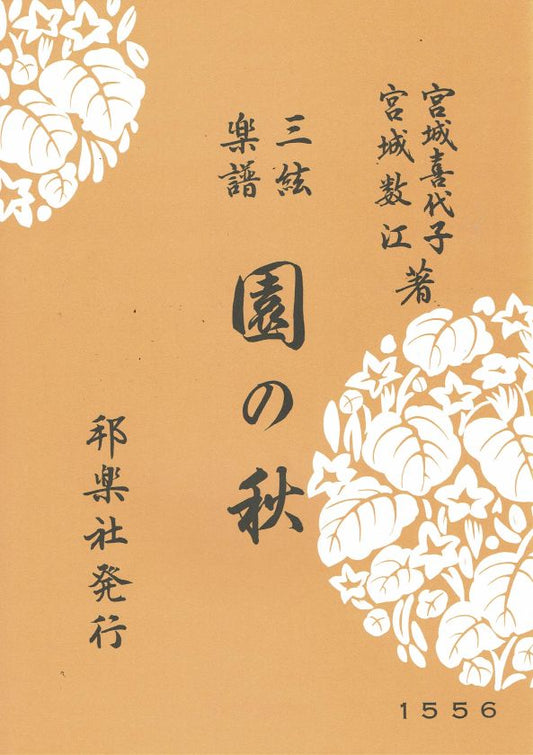 宮城喜代子
宮城数江
著
三絃
楽譜
園の秋
邦楽社発行
1556